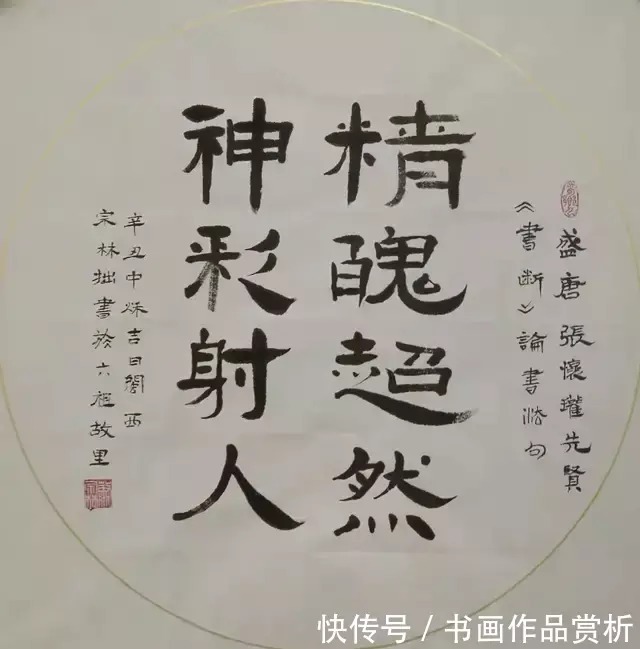 盛唐張懷瓘先賢
《書斷》論書法句
精醜超然
神彩射人
辛丑中秌吉日粵西
宗林拙書於六祖故里
快传号 / 书画作品赏析